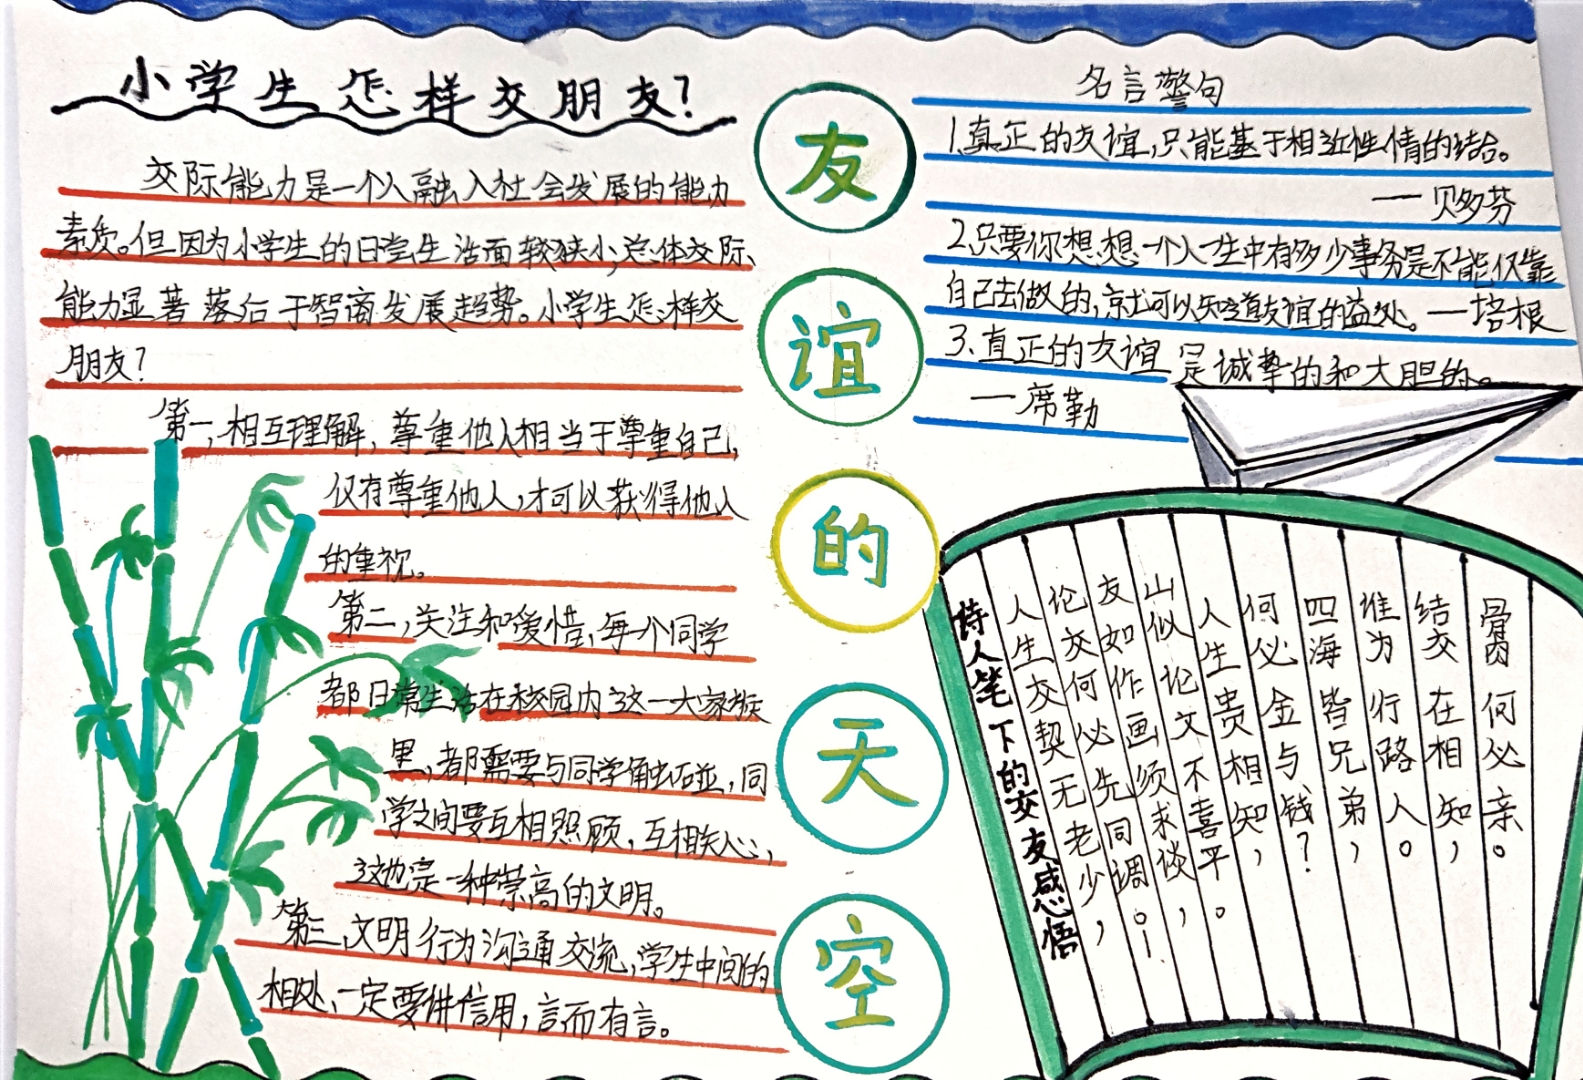 小学生怎样交朋友?
交际能力是一个人融入社会发展的能力
素质。但因为小学生的日常生活面较狭小,总体交际
能力显著落后于智商发展趋势。小学生怎样交
朋友?
第一,相互理解,尊重他人相当于尊重自己,
仅有尊重他人,才可以获得他人
的重视。
第二,关注和爱惜,每个同学
都日常生活在校园内这一大家族
里,都需要与同学触碰,同
学之间要互相照顾,互相关心,
这也是一种崇高的文明。
第三、文明行为沟通交流,学生中间的
相处、一定要讲信用,言而有言。
友
谊
的
天
空
名言警句
1.真正的友谊,只能基于相近性情的结合。
一贝多芬
2.只要你想想一个人一生中有多少事务是不能仅靠
自己去做的,就可以知道友谊的益处。一培根
3、真正的友谊是诚挚的和大胆的。
一席勒
诗人笔下的交友感悟
人生交契无老少,
论交何必先同调。
友如作画须求淡,
山似论文不喜平。
人生贵相知,
何必金与钱?
四海皆兄弟,
谁为行路人。
结交在相知,
骨肉何必亲。